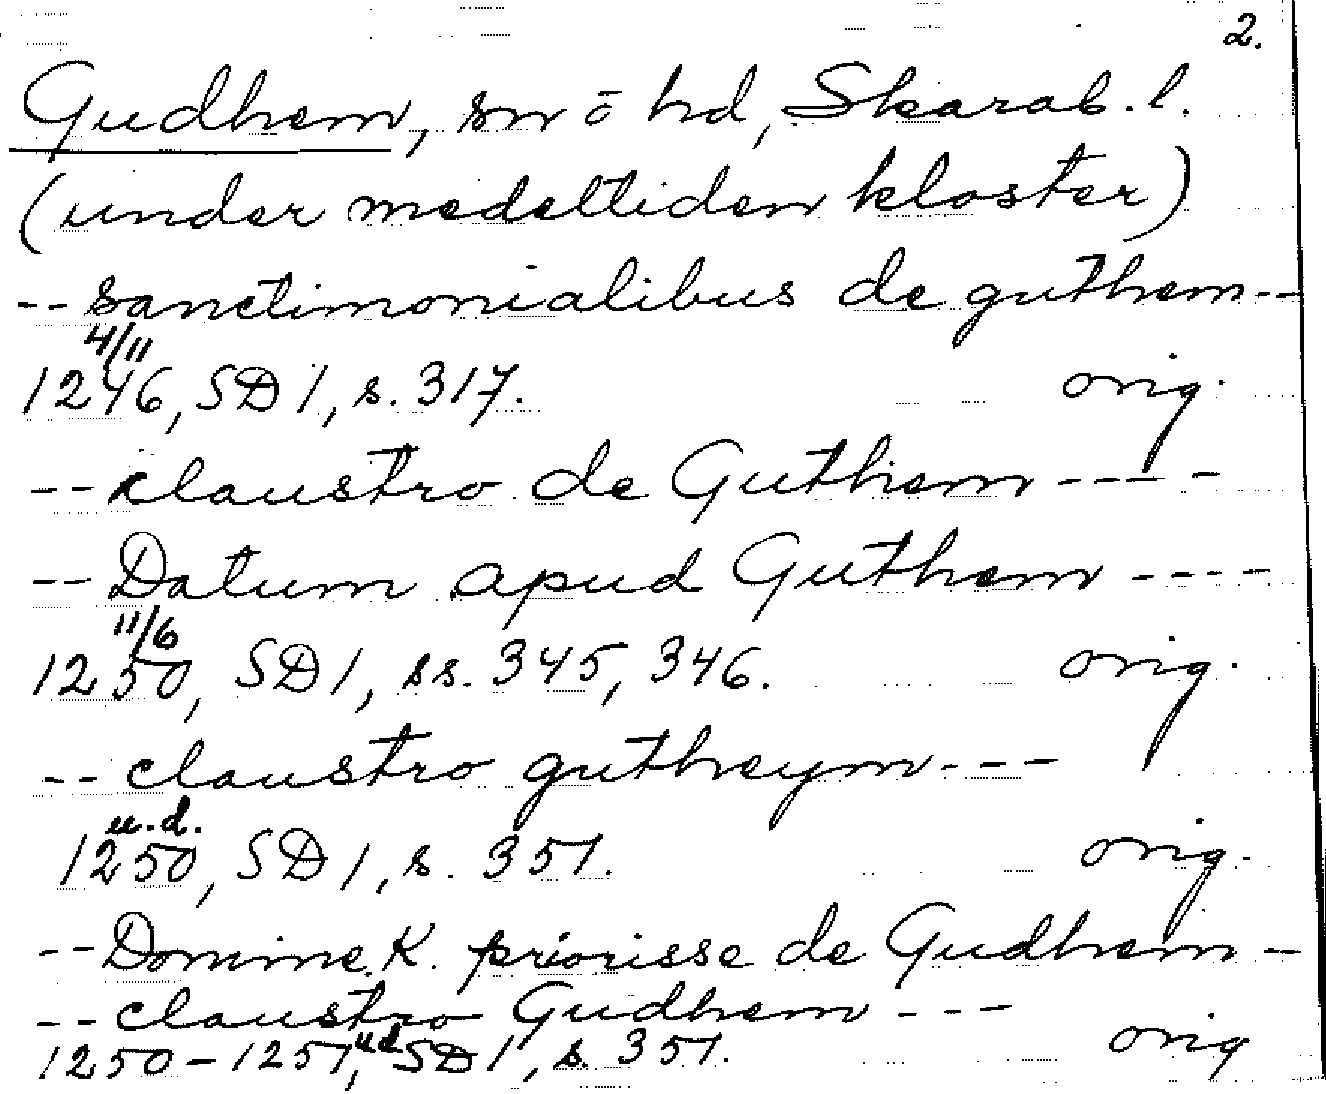 2.
Gudhem, sn o hd, Skarab. l.
(under medeltiden kloster)
-- sanctimonialibus de guthem --
4/11
1246, SD 1, s. 317. orig.
-- claustro de Guthem ----
-- Datum apud Guthem ----
11/6
1250, SD 1, ss. 345, 346. orig.
-- claustro gutheym ---
u.d.
1250, SD 1, s. 351. orig.
-- Domine K. priorisse de Gudhem --
-- claustro Gudhem ---
1250-1251, u.d. SD 1, s. 351. orig